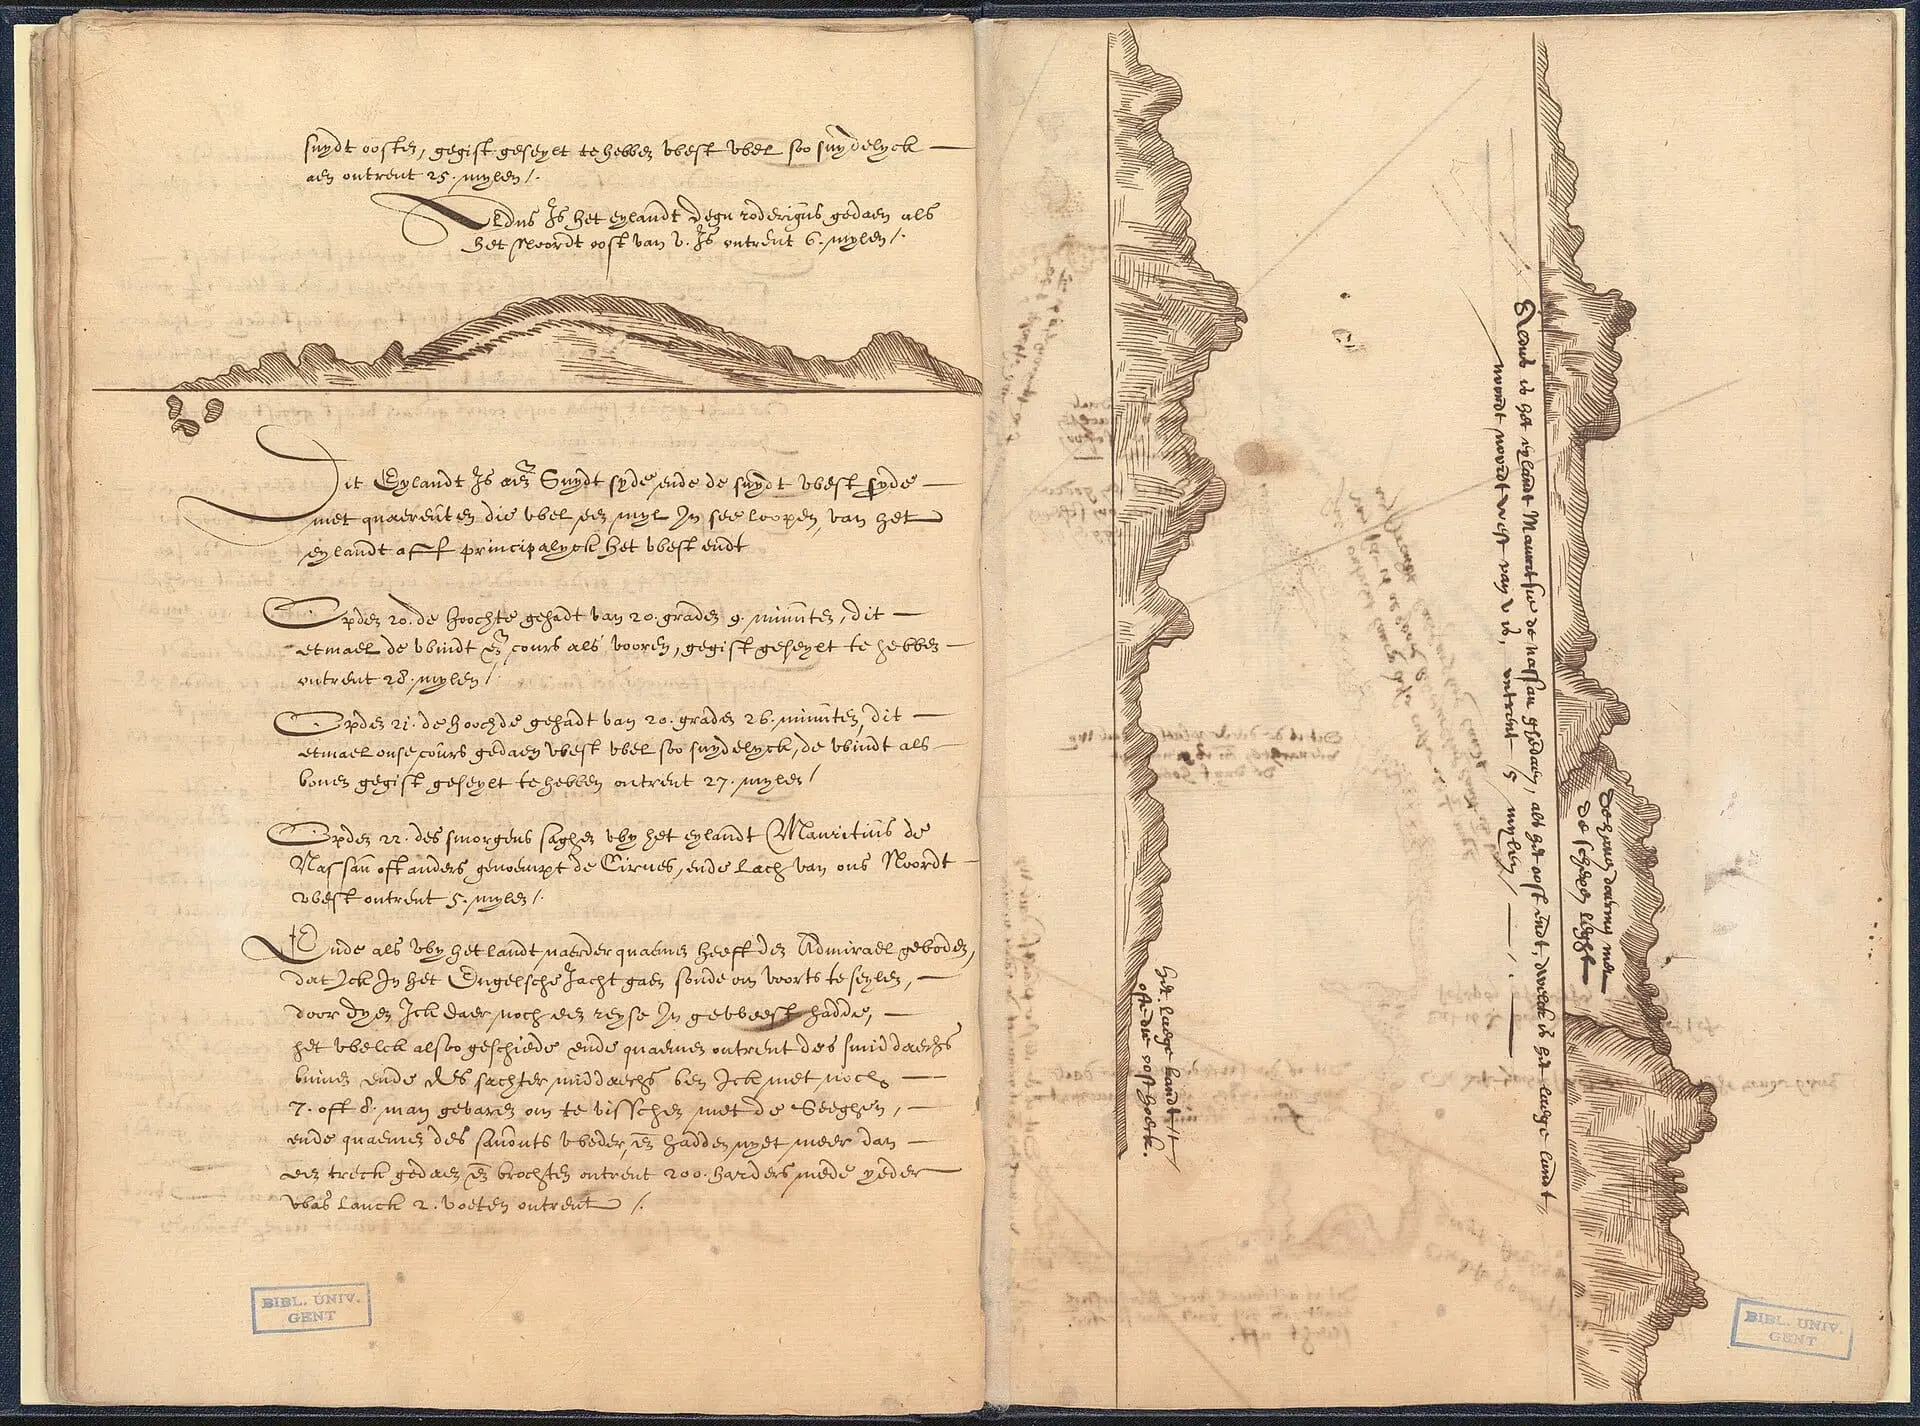 suydt oosten, gegist geseylt te hebben west wel soo suydelyck
aen ontrent 25. mylen /.
Aldus Is het eylandt Diego roderigus gedaen als
het Noordt oost van v. Is ontrent 6. mylen /.
Dit Eylandt Is aen Suydt syde ende de suydt west syde
met quaerenten die wel een myl In see loopen, van het
eylandt aff principalyck het west endt
Opden 20. de hoochte gehadt van 20. graden 9. minuten, dit
etmael de windt en cours als vooren, gegist geseylt te hebben
ontrent 28. mylen /
Opden 21. de hoochde gehadt van 20. graden 26. minuten, dit
etmael onse cours gedaen west wel soo suydelyck, de windt als
boven gegist geseylt te hebben ontrent 27. mylen /
Opden 22. des smorgens saghen wy het eylandt Mauritius de
Nassau oft anders genoempt de Cirnes, ende Lach van ons Noordt
west ontrent 5. mylen /.
Ende als wy het landt naerder quaemen heeft den Admirael geboden,
dat Ick In het Engelsche Jacht gaen soude om voorts te seylen,
door dyen Ick daer noch een reyse In geweest hadde,
het welck alsoo geschiede ende quaemen ontrent des smiddaechs
binnen ende des sachter middaechs ben Ick met noch
7. oft 8. man gevaren om te visschen met de Seeghen,
ende quaemen des savonts weder, en hadden nyet meer dan
een treck gedaen en brochten ontrent 200. harders mede yeder
was Lanck 2. voeten ontrent /.
BIBL. UNIV.
GENT
het laege landt
ofte die oosthoeck.
Aldus is het eylandt Mauritsius de nassau ghedaen, als het oost endt, dwelck is het laege landt,
noordt noordt west van v is, ontrent 5 mylen /
De haven daermen men
de schepen lijght
BIBL. UNIV.
GENT